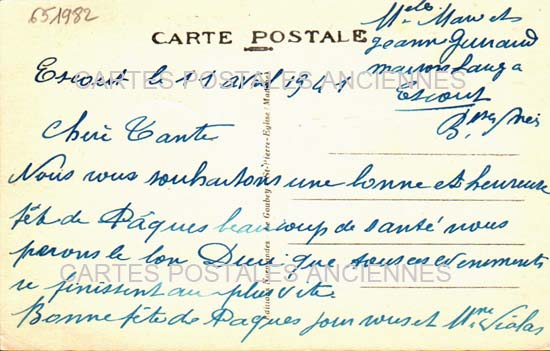 651982
CARTE POSTALE
Melles Marc et
Jeanne
maison Lauga
Escout
Bses Pyrées
Escout le 11 avril 1941
CARTES POSTALES ANCIENNES
Chère Tante
Nous vous souhaitons une bonne et heureuse
fête de Pâques beaucoup de santé nous
prions le bon Dieu que tous ces évènements
CARTES POSTALES ANCIENNES
se finissent au plus vite.
Bonne fête de Pâques pour vous et Mme